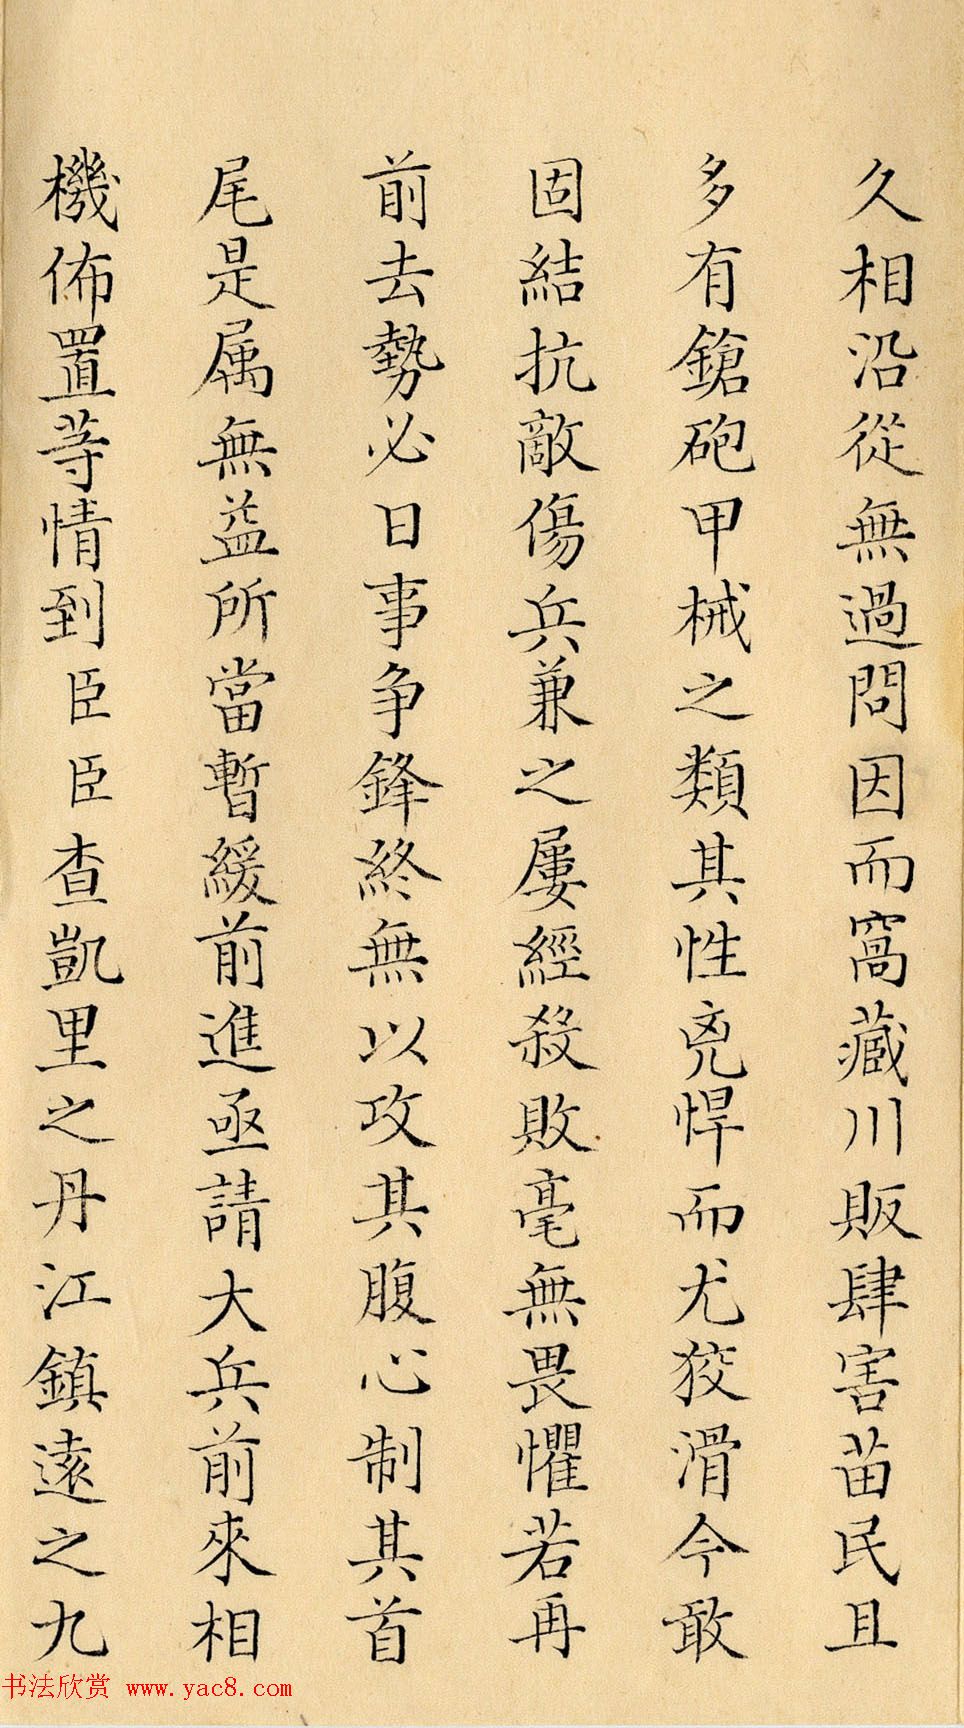 久相沿從無過問因而窩藏川販肆害苗民且
多有鎗砲甲械之類其性兇悍而尤狡滑今敢
固結抗敵傷兵兼之屢經殺敗毫無畏懼若再
前去勢必日事争鋒終無以攻其腹心制其首
尾是属無益所當暫緩前進亟請大兵前來相
機佈置等情到臣臣查凱里之丹江鎮遠之九
书法欣赏 www.yac8.com